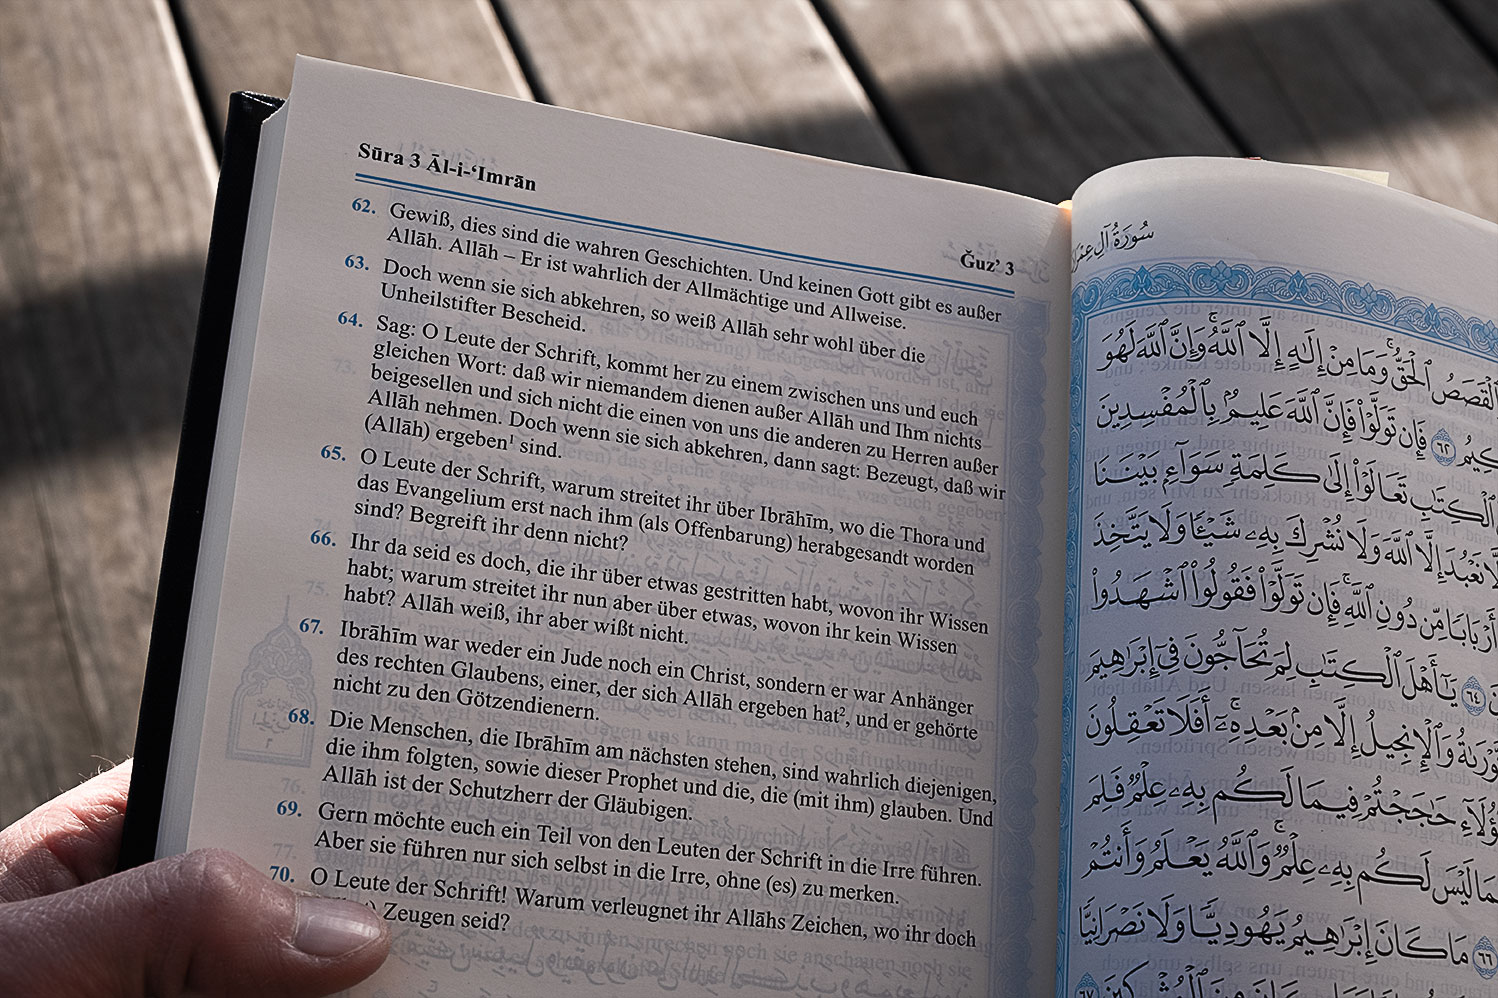 Sūra 3 Āl-i-‘Imrān
Ğuz’ 3
62. Gewiß, dies sind die wahren Geschichten. Und keinen Gott gibt es außer
Allāh. Allāh – Er ist wahrlich der Allmächtige und Allweise.
63. Doch wenn sie sich abkehren, so weiß Allāh sehr wohl über die
Unheilstifter Bescheid.
64. Sag: O Leute der Schrift, kommt her zu einem zwischen uns und euch
gleichen Wort: daß wir niemandem dienen außer Allāh und Ihm nichts
beigesellen und sich nicht die einen von uns die anderen zu Herren außer
Allāh nehmen. Doch wenn sie sich abkehren, dann sagt: Bezeugt, daß wir
(Allāh) ergeben¹ sind.
65. O Leute der Schrift, warum streitet ihr über Ibrāhīm, wo die Thora und
das Evangelium erst nach ihm (als Offenbarung) herabgesandt worden
sind? Begreift ihr denn nicht?
66. Ihr da seid es doch, die ihr über etwas gestritten habt, wovon ihr Wissen
habt; warum streitet ihr nun aber über etwas, wovon ihr kein Wissen
habt? Allāh weiß, ihr aber wißt nicht.
67. Ibrāhīm war weder ein Jude noch ein Christ, sondern er war Anhänger
des rechten Glaubens, einer, der sich Allāh ergeben hat², und er gehörte
nicht zu den Götzendienern.
68. Die Menschen, die Ibrāhīm am nächsten stehen, sind wahrlich diejenigen,
die ihm folgten, sowie dieser Prophet und die, die (mit ihm) glauben. Und
Allāh ist der Schutzherr der Gläubigen.
69. Gern möchte euch ein Teil von den Leuten der Schrift in die Irre führen.
Aber sie führen nur sich selbst in die Irre, ohne (es) zu merken.
70. O Leute der Schrift! Warum verleugnet ihr Allāhs Zeichen, wo ihr doch
Zeugen seid?
سُورَةُ آلِ عِمْرَانَ
ٱلْقَصَصُ ٱلْحَقُّ ۚ وَمَا مِنْ إِلَـٰهٍ إِلَّا ٱللَّهُ ۚ وَإِنَّ ٱللَّهَ لَهُوَ
٦٢ فَإِن تَوَلَّوْا۟ فَإِنَّ ٱللَّهَ عَلِيمٌۢ بِٱلْمُفْسِدِينَ
ٱلْكِتَـٰبِ تَعَالَوْا۟ إِلَىٰ كَلِمَةٍ سَوَآءٍۭ بَيْنَنَا
نَعْبُدَ إِلَّا ٱللَّهَ وَلَا نُشْرِكَ بِهِۦ شَيْـًٔا وَلَا يَتَّخِذَ
أَرْبَابًا مِّن دُونِ ٱللَّهِ ۚ فَإِن تَوَلَّوْا۟ فَقُولُوا۟ ٱشْهَدُوا۟
٦٤ يَـٰٓأَهْلَ ٱلْكِتَـٰبِ لِمَ تُحَآجُّونَ فِىٓ إِبْرَٰهِيمَ
وَٱلْإِنجِيلُ إِلَّا مِنۢ بَعْدِهِۦٓ ۚ أَفَلَا تَعْقِلُونَ
حَـٰجَجْتُمْ فِيمَا لَكُم بِهِۦ عِلْمٌ فَلِمَ
لَيْسَ لَكُم بِهِۦ عِلْمٌ ۚ وَٱللَّهُ يَعْلَمُ وَأَنتُمْ
٦٦ مَا كَانَ إِبْرَٰهِيمُ يَهُودِيًّا وَلَا نَصْرَانِيًّا
٦٧